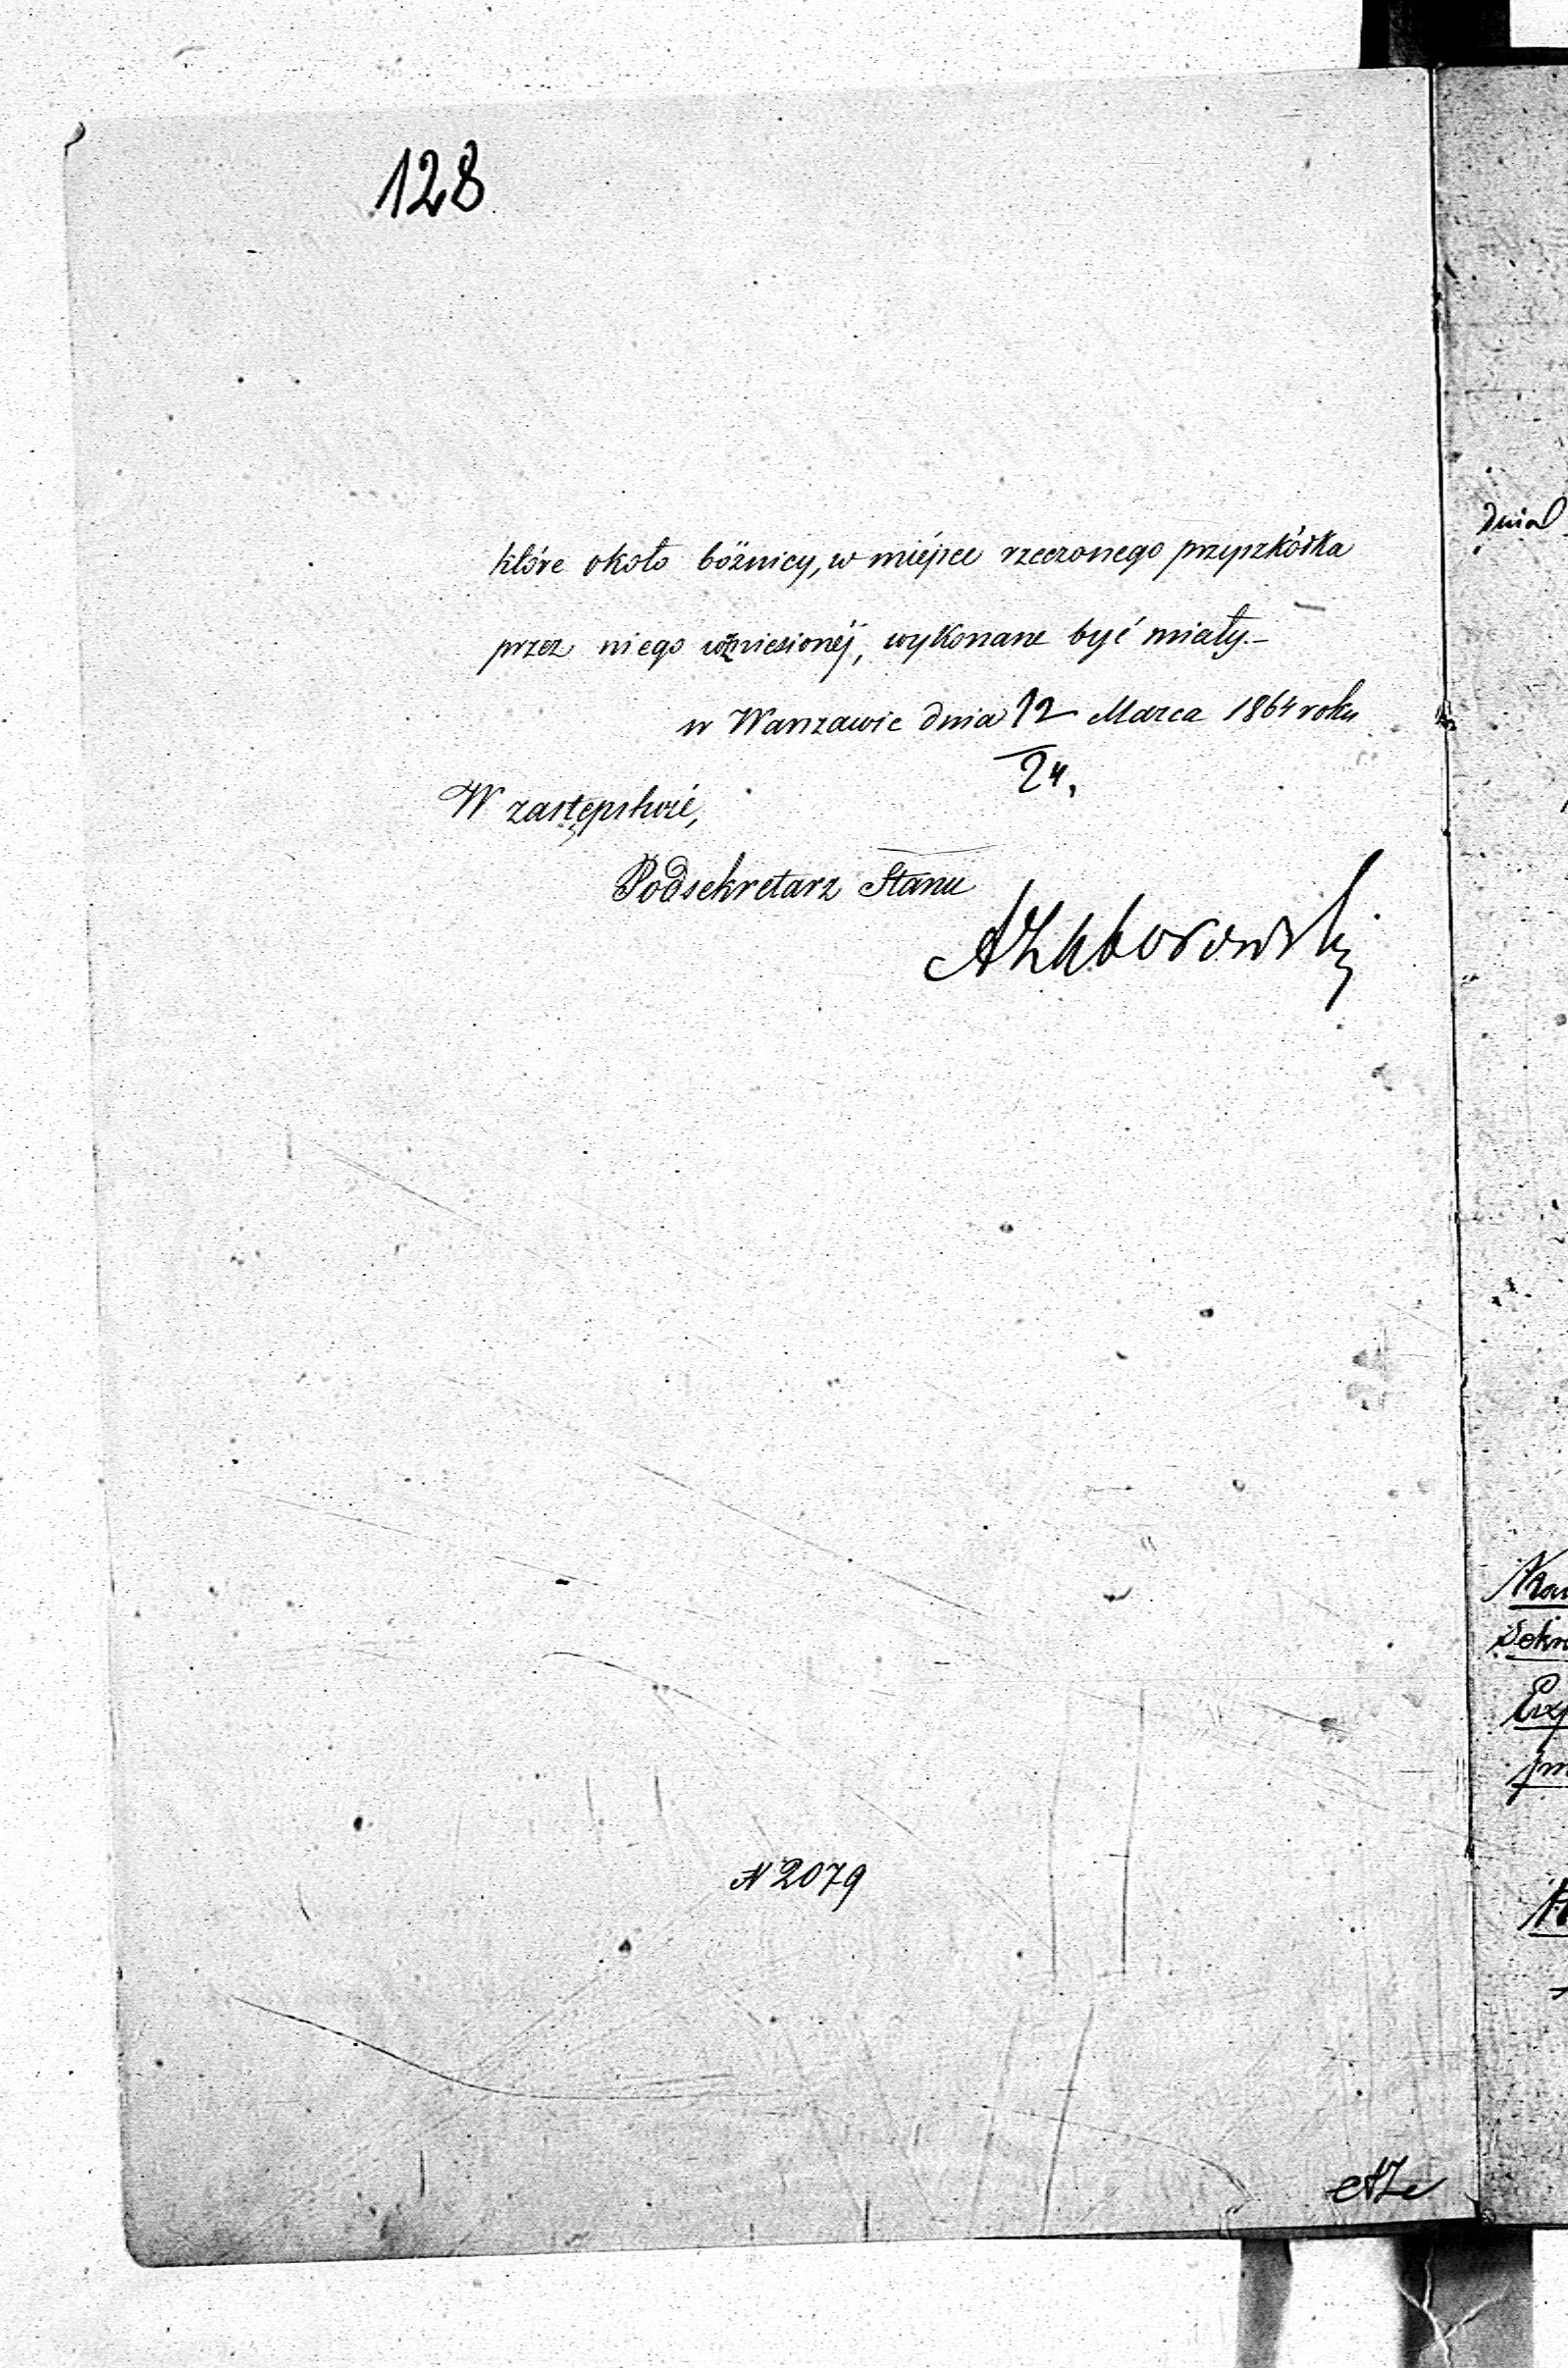 128
które około bóżnicy, w miéjsce rzeczonego przyszkółka
przez niego wzniesionéj, wykonane być miały.—
w Warszawie dnia 12/24 Marca 1864 roku
W zastępstwie,
Podsekretarz Stanu
AZaborowski
N 2079
dnia
Sekr